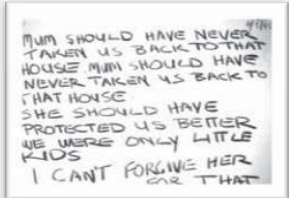 MUM SHOULD HAVE NEVER
TAKEN US BACK TO THAT
HOUSE. MUM SHOULD HAVE
NEVER TAKEN US BACK TO
THAT HOUSE
SHE SHOULD HAVE
PROTECTED US BETTER
WE WERE ONLY LITTLE
KIDS
I CAN'T FORGIVE HER
FOR THAT